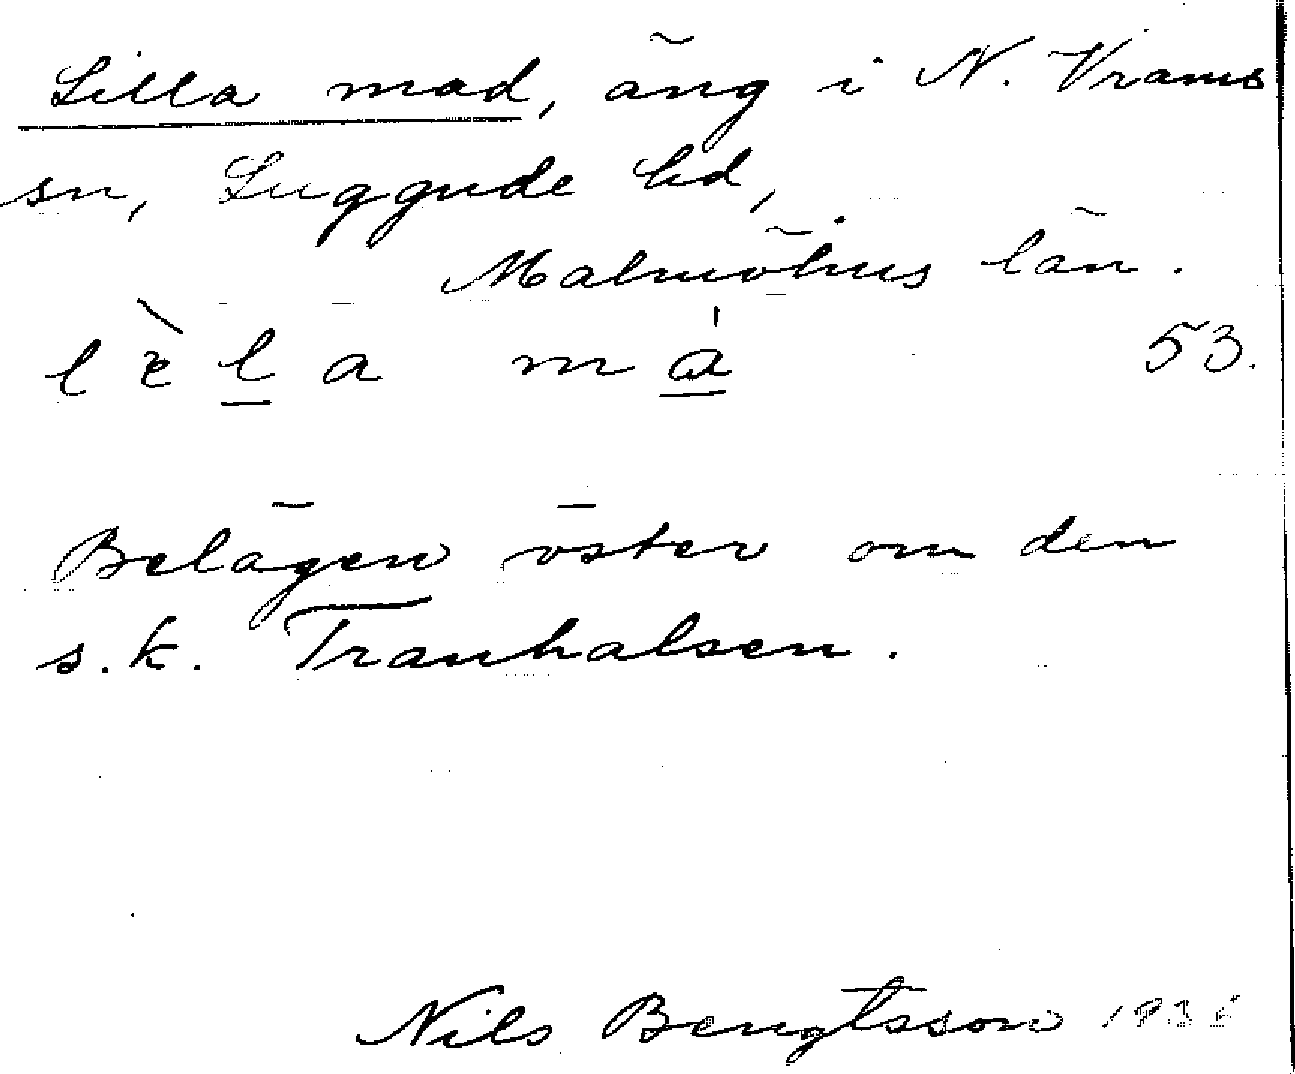 Lilla mad, äng i N. Vrams
sn, Luggude hd,
Malmöhus län.
lèla mà 53.
Belägen öster om den
s.k. Tranhalsen.
Nils Bengtsson